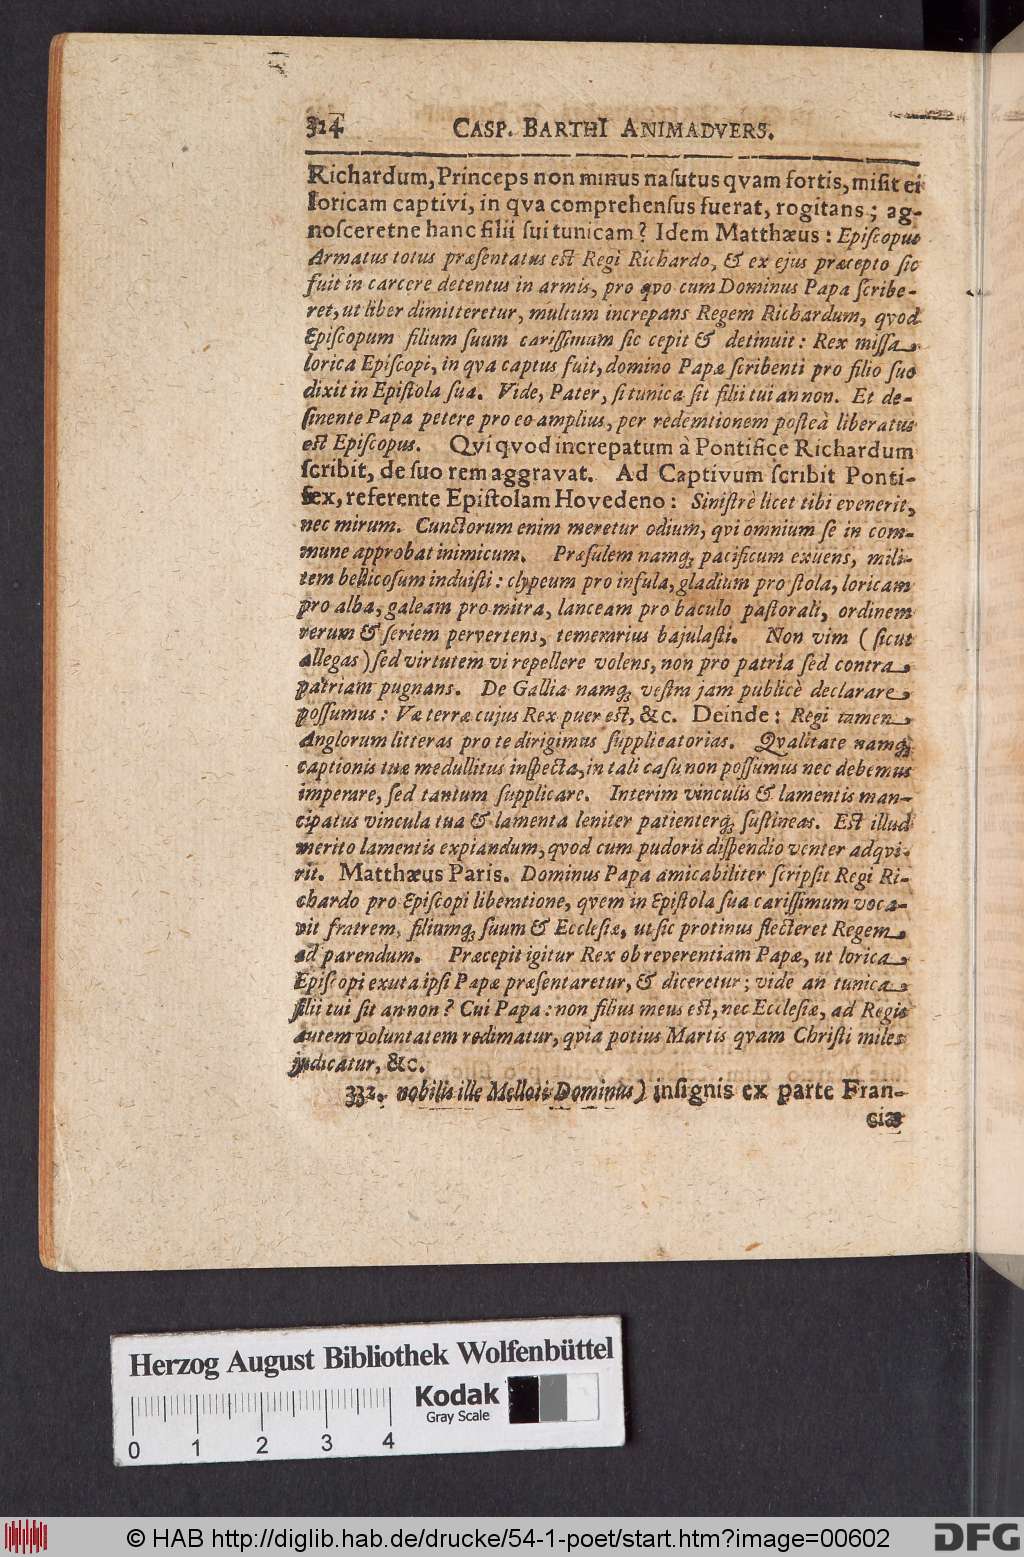 324 CASP. BARTHI ANIMADVERS.
Richardum, Princeps non minus nasutus qvam fortis, misit ei
loricam captivi, in qva comprehensus fuerat, rogitans; ag-
nosceretne hanc filii sui tunicam? Idem Matthæus: Episcopus
Armatus totus præsentatus est Regi Richardo, & ex ejus præcepto sic
fuit in carcere detentus in armis, pro qvo cum Dominus Papa scribe-
ret, ut liber dimitteretur, multum increpans Regem Richardum, qvod
Episcopum filium suum carissimum sic cepit & detinuit: Rex missa
lorica Episcopi, in qva captus fuit, domino Papæ scribenti pro filio suo
dixit in Epistola sua. Vide, Pater, si tunica sit filii tui an non. Et de-
sinente Papa petere pro eo amplius, per redemtionem posteà liberatus
est Episcopus. Qvi qvod increpatum à Pontifice Richardum
scribit, de suo rem aggravat. Ad Captivum scribit Ponti-
fex, referente Epistolam Hovedeno: Sinistrè licet tibi evenerit,
nec mirum. Cunctorum enim meretur odium, qvi omnium se in com-
mune approbat inimicum. Præsulem namq; pacificum exuens, mili-
tem bellicosum induisti: clypeum pro infula, gladium pro stola, loricam
pro alba, galeam pro mitra, lanceam pro baculo pastorali, ordinem
rerum & seriem pervertens, temerarius bajulasti. Non vim (sicut
allegas) sed virtutem vi repellere volens, non pro patria sed contra
patriam pugnans. De Gallia namq; vestra jam publicè declarare
possumus: Væ terræ cujus Rex puer est, &c. Deinde: Regi tamen
Anglorum litteras pro te dirigimus supplicatorias. Qvalitate namq;
captionis tuæ medullitus inspecta, in tali casu non possumus nec debemus
imperare, sed tantum supplicare. Interim vinculis & lamentis man-
cipatus vincula tua & lamenta leniter patienterq; sustineas. Est illud
merito lamentis expiandum, qvod cum pudoris dispendio venter adqvi-
rit. Matthæus Paris. Dominus Papa amicabiliter scripsit Regi Ri-
chardo pro Episcopi liberatione, qvem in Epistola sua carissimum voca-
vit fratrem, filiumq; suum & Ecclesiæ, ut sic protinus flecteret Regem
ad parendum. Præcepit igitur Rex ob reverentiam Papæ, ut lorica
Episcopi exuta ipsi Papæ præsentaretur, & diceretur; vide an tunica
filii tui sit an non? Cui Papa: non filius meus est, nec Ecclesiæ, ad Regis
autem voluntatem redimatur, qvia potius Martis qvam Christi miles
judicatur, &c.
332. nobilis ille Melloti Dominus) insignis ex parte Fran-
ciæ
Herzog August Bibliothek Wolfenbüttel
Kodak
Gray Scale
0 1 2 3 4
© HAB http://diglib.hab.de/drucke/54-1-poet/start.htm?image=00602
DFG